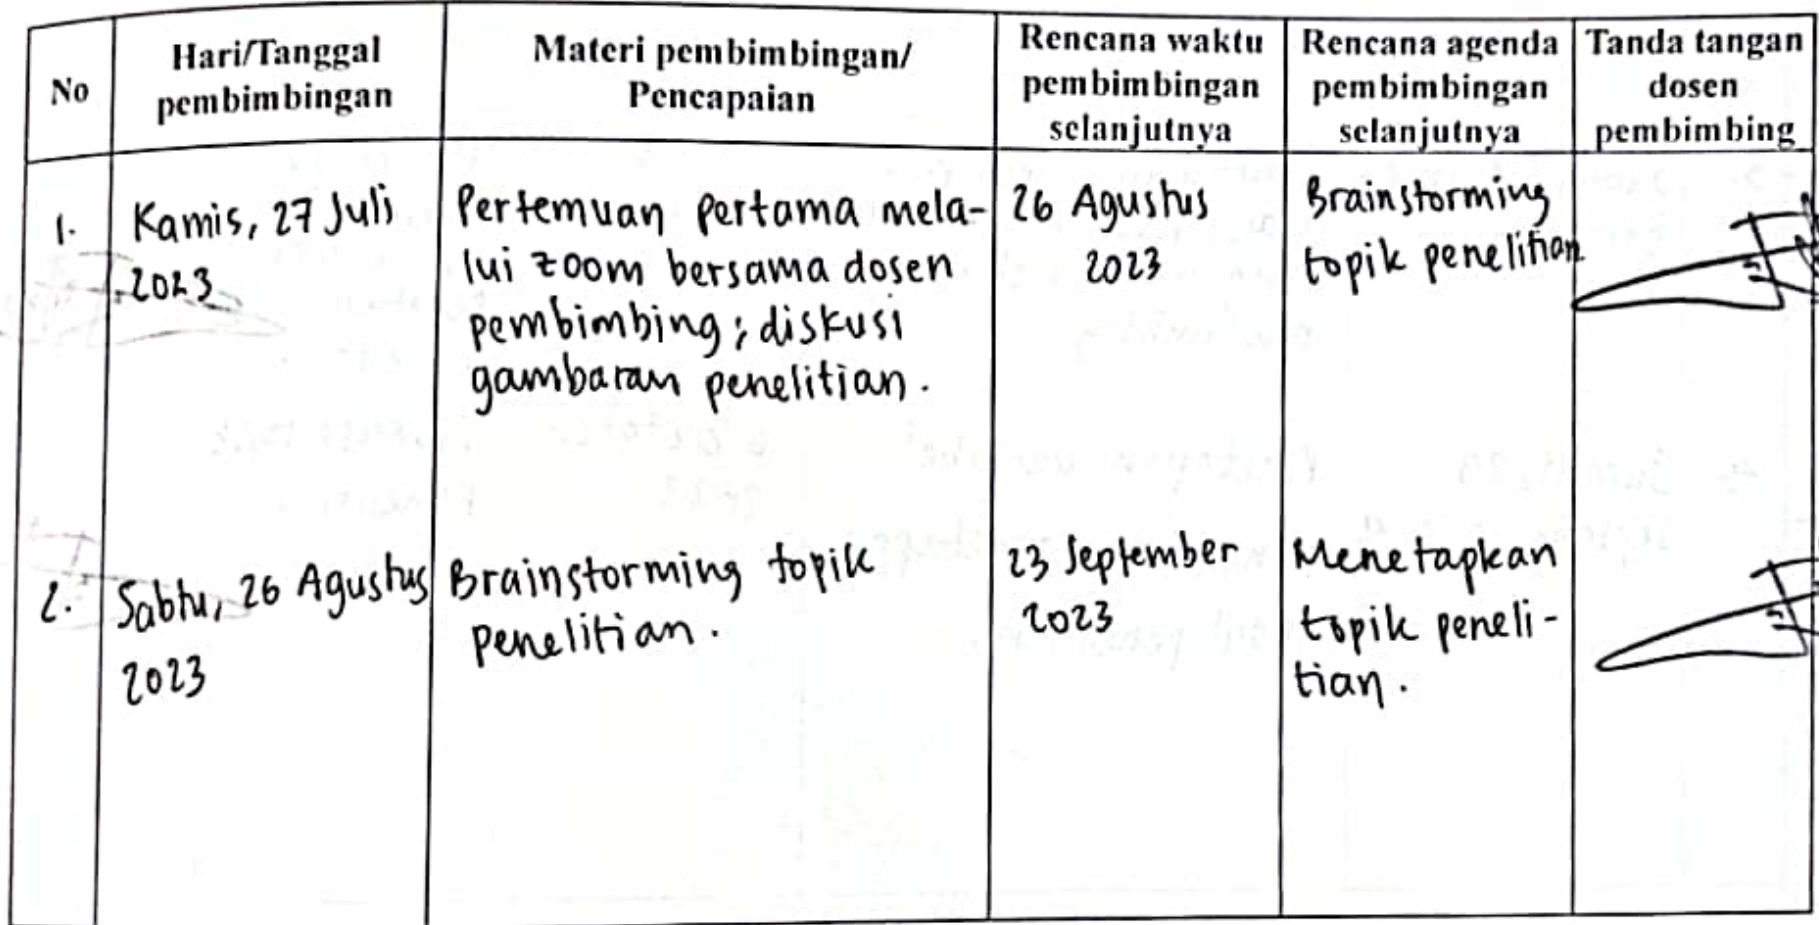 No
Hari/Tanggal
pembimbingan
Materi pembimbingan/
Pencapaian
Rencana waktu
pembimbingan
selanjutnya
Rencana agenda
pembimbingan
selanjutnya
Tanda tangan
dosen
pembimbing
1.
Kamis, 27 Juli
2023
Pertemuan pertama mela-
lui zoom bersama dosen
pembimbing ; diskusi
gambaran penelitian.
26 Agustus
2023
Brainstorming
topik penelitian
2.
Sabtu, 26 Agustus
2023
Brainstorming topik
penelitian.
23 September
2023
Menetapkan
topik peneli-
tian.